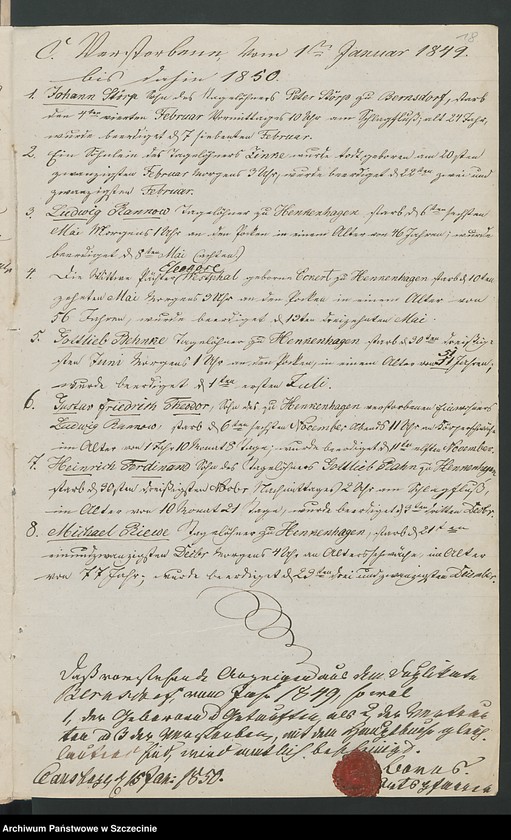 18
C. Verstorbene, vom 1ten Januar 1849.
bis dahin 1850.
1. Johann Störp Sohn des Tagelöhners Peter Störp zu Bernsdorf, starb
den 4ten vierten Februar Vormittages 10 Uhr am Schlagfluß, alt 24 Jahr,
wurde beerdiget d 7 siebenten Februar.
2. Ein Söhnlein des Tagelöhners Zinke wurde todt geboren am 20sten
zwanzigsten Februar Morgens 3 Uhr, wurde beerdiget d 22ten zwei und
zwanzigsten Februar.
3. Ludwig Rannow Tagelöhner zu Hennenhagen starb d 6ten sechsten
Mai Morgens 1 Uhr an den Pocken in einem Alter von 46 Jahren; wurde
beerdiget d 8ten Mai (achten)
4. Die Wittwe geborne zu Hennenhagen starb d 10ten
zehnten Mai Morgens 3 Uhr an den Pocken in einem Alter von
56 Jahren, wurde beerdiget d 13ten dreizehnten Mai.
5. Gottlieb Behnke Tagelöhner zu Hennenhagen starb d 30ten dreißig-
sten Juni Morgens 1 Uhr an den Pocken, in einem Alter von 31 Jahren;
wurde beerdiget d 1ten ersten Juli.
6. Gustav Friedrich Theodor, Sohn des zu Hennenhagen verstorbenen Einwohners
Ludwig Rannow starb d 6ten sechsten November Abends 11 Uhr an
im Alter von 1 Jahr 10 Monat 8 Tage; wurde beerdiget d 11ten elften November.
7. Heinrich Ferdinand Sohn des Tagelöhners Gottlieb Hahn zu Hennenhagen
starb d 30sten dreißigsten Novbr Nachmittages 2 Uhr am Schlagfluß,
im Alter von 10 Monat 21 Tage, wurde beerdiget d 3ten dritten Decbr.
8. Michael Riewe Tagelöhner zu Hennenhagen, starb d 21sten
einundzwanzigsten Decbr Morgens 4 Uhr an Altersschwäche, im Alter
von 77 Jahr; wurde beerdiget d 23ten drei und zwanzigsten December.
Daß vorstehende Anzeigen aus dem Duplikate
Bernsdorf, vom Jahr 1849, sowol
1, der Geborenen u Getauften, als 2, der Getrau-
ten u 3 der Verstorbenen, mit dem Hauptbuche gleich-
lautend sind, wird amtlich bescheinigt.
d 15 Jan. 1850.
Archiwum Państwowe w Szczecinie